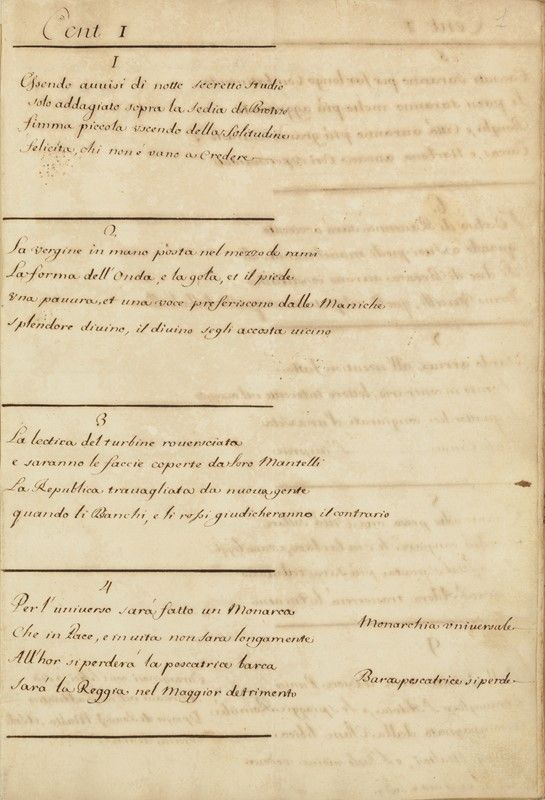 Cent 1
1
1
Essendo auuisi di notte secretto studio
solo addagiato sopra la sedia di Bronzo
fimma piccola vscendo della solitudine
felicita, chi non é vano a Credere
2
La vergine in mano posta nel mezzo de rami
La forma dell'Onda, e la gota, et il piede
vna pauura, et una voce preferiscono dalle Maniche
splendore diuino, il diuino segli accosta uicino
3
La lectica del turbine rouersciata
e saranno le faccie coperte da loro Mantelli
La Republica trauagliata da nuoua gente
quando li Bianchi, e li rossi giudicheranno il contrario
4
Per l'universo sará fatto un Monarca
Che in Pace, e in uita non sara longamente
All'hor si perderá la pescatrice barca
Sará la Reggia nel Maggior detrimento
Monarchia vniuersale
Barca pescatrice si perde